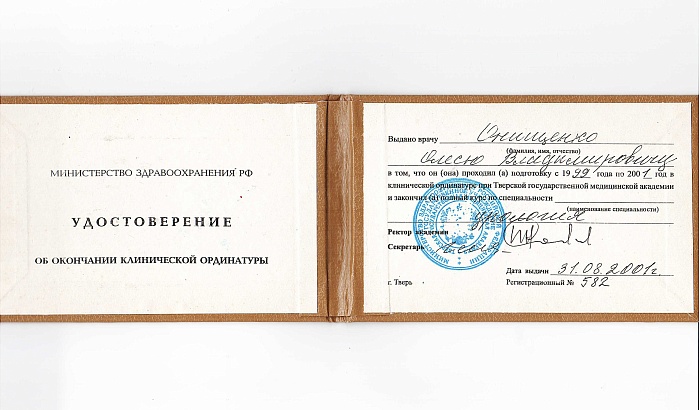 МИНИСТЕРСТВО ЗДРАВООХРАНЕНИЯ РФ
УДОСТОВЕРЕНИЕ
ОБ ОКОНЧАНИИ КЛИНИЧЕСКОЙ ОРДИНАТУРЫ
Выдано врачу Онищенко
(фамилия, имя, отчество)
Олегю Владимировичу
в том, что он (она) проходил (а) подготовку с 1999 года по 2001 год в
клинической ординатуре при Тверской государственной медицинской академии
и закончил (а) полный курс по специальности
(наименование специальности)
урология
Ректор академии
Секретарь
Дата выдачи 31.08.2001г.
г. Тверь
Регистрационный № 582